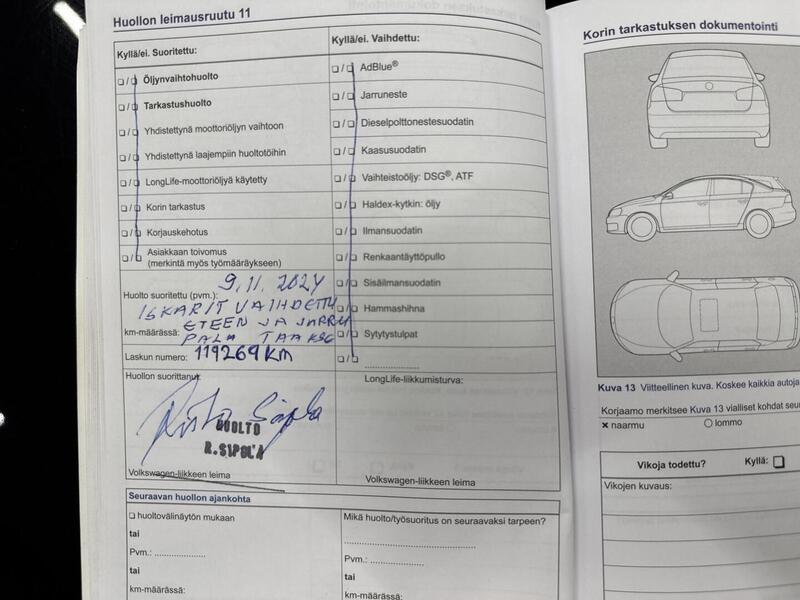 Huollon leimausruutu 11
Kyllä/ei. Suoritettu:
❑ / ❑ Öljynvaihtohuolto
❑ / ❑ Tarkastushuolto
❑ / ❑ Yhdistettynä moottoriöljyn vaihtoon
❑ / ❑ Yhdistettynä laajempiin huoltotöihin
❑ / ❑ LongLife-moottoriöljyä käytetty
❑ / ❑ Korin tarkastus
❑ / ❑ Korjauskehotus
❑ / ❑ Asiakkaan toivomus
(merkintä myös työmääräykseen)
Kyllä/ei. Vaihdettu:
❑ / ❑ AdBlue®
❑ / ❑ Jarruneste
❑ / ❑ Dieselpolttonestesuodatin
❑ / ❑ Kaasusuodatin
❑ / ❑ Vaihteistoöljy: DSG®, ATF
❑ / ❑ Haldex-kytkin: öljy
❑ / ❑ Ilmansuodatin
❑ / ❑ Renkaantäyttöpullo
❑ / ❑ Sisäilmansuodatin
❑ / ❑ Hammashihna
❑ / ❑ Sytytystulpat
❑ / ❑ ....................
9.11.2024
Huolto suoritettu (pvm.):
ISKARIT VAIHDETTU
ETEEN JA JARRU
km-määrässä: PALA TAAKSE
Laskun numero: 119269 KM
Huollon suorittanut
Risto Sipola
HUOLTO
R.SIPOLA
Volkswagen-liikkeen leima
LongLife-liikkumisturva:
Volkswagen-liikkeen leima
Seuraavan huollon ajankohta
❑ huoltovälinäytön mukaan
tai
Pvm.: ...................
tai
km-määrässä:
Mikä huolto/työsuoritus on seuraavaksi tarpeen?
Pvm.: ...................
tai
km-määrässä:
Korin tarkastuksen dokumentointi
Kuva 13 Viitteellinen kuva. Koskee kaikkia autoja
Korjaamo merkitsee Kuva 13 vialliset kohdat
✕ naarmu ○ lommo
Vikoja todettu? Kyllä: ❑
Vikojen kuvaus: